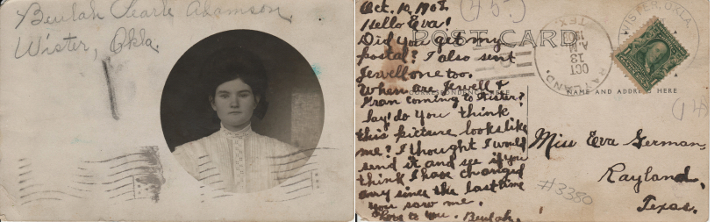 Beulah Pearl Adamson
Wister, Okla.
Oct. 10, 190
Hello Eva!
Did you get my
postal? I also sent
Jewell one too.
When are Jewell &
Fran coming to Wister?
Say! do you think
this picture looks like
me? I thought I would
send it and see if you
think I have changed
any since the last time
you saw me.
Love to you. Beulah.
POST CARD
CORRESPONDENCE HERE
NAME AND ADDRESS HERE
WISTER, OKLA.
RAYLAND,
TEX.
OCT
13
Miss Eva German
Rayland,
Texas.
#3380
(14)